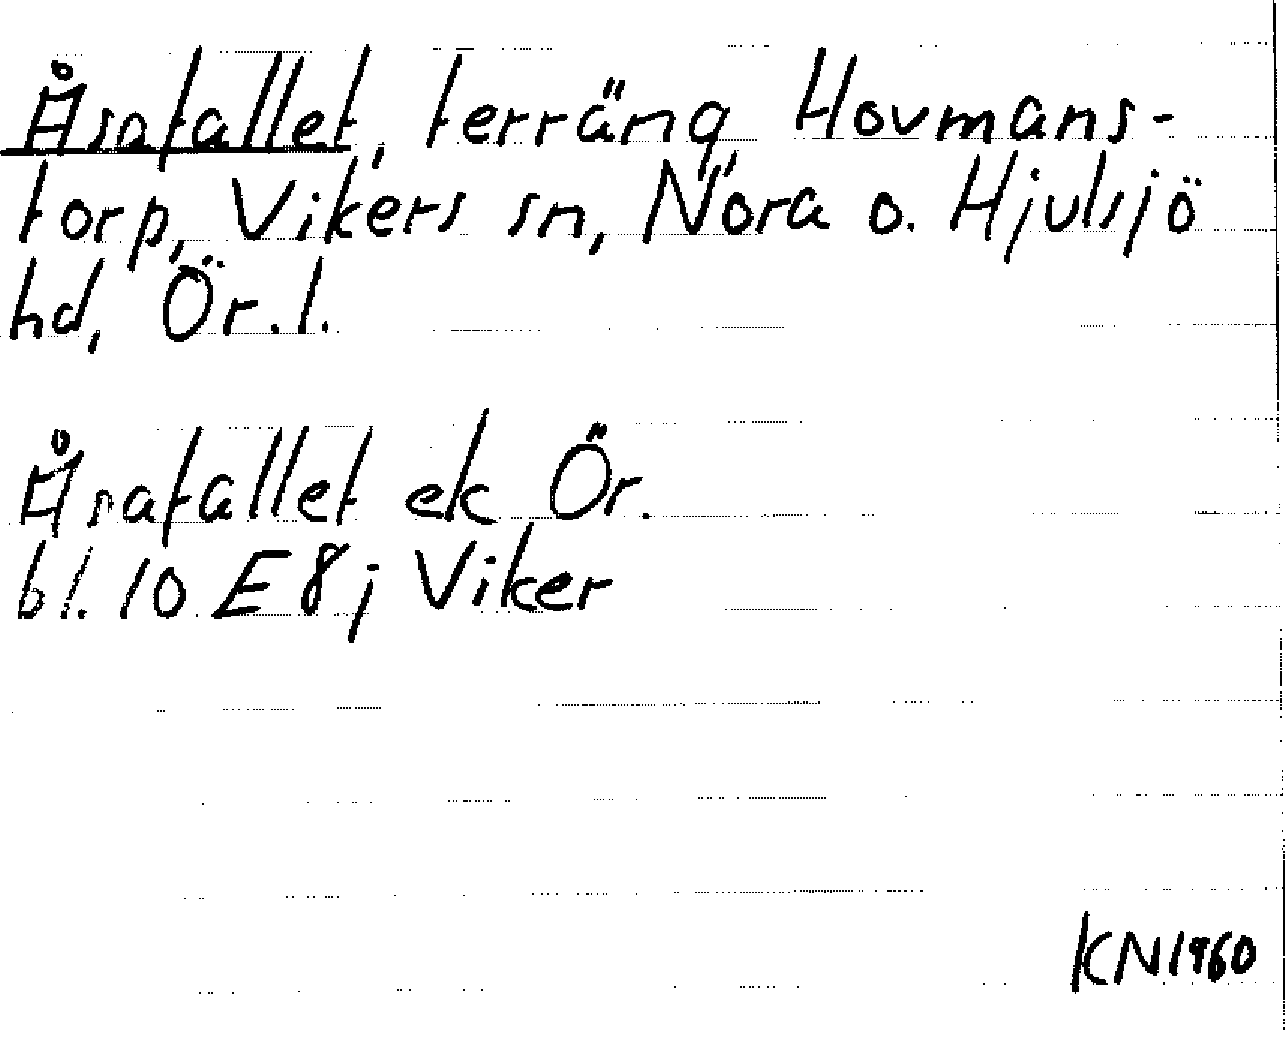 Åsnfallet, terräng, Hovmans-
torp, Vikers sn, Nora o. Hjulsjö
hd, Ör. l.
Åsafallet ek Ör.
bl. 10 E 8 j Viker
KN 1960